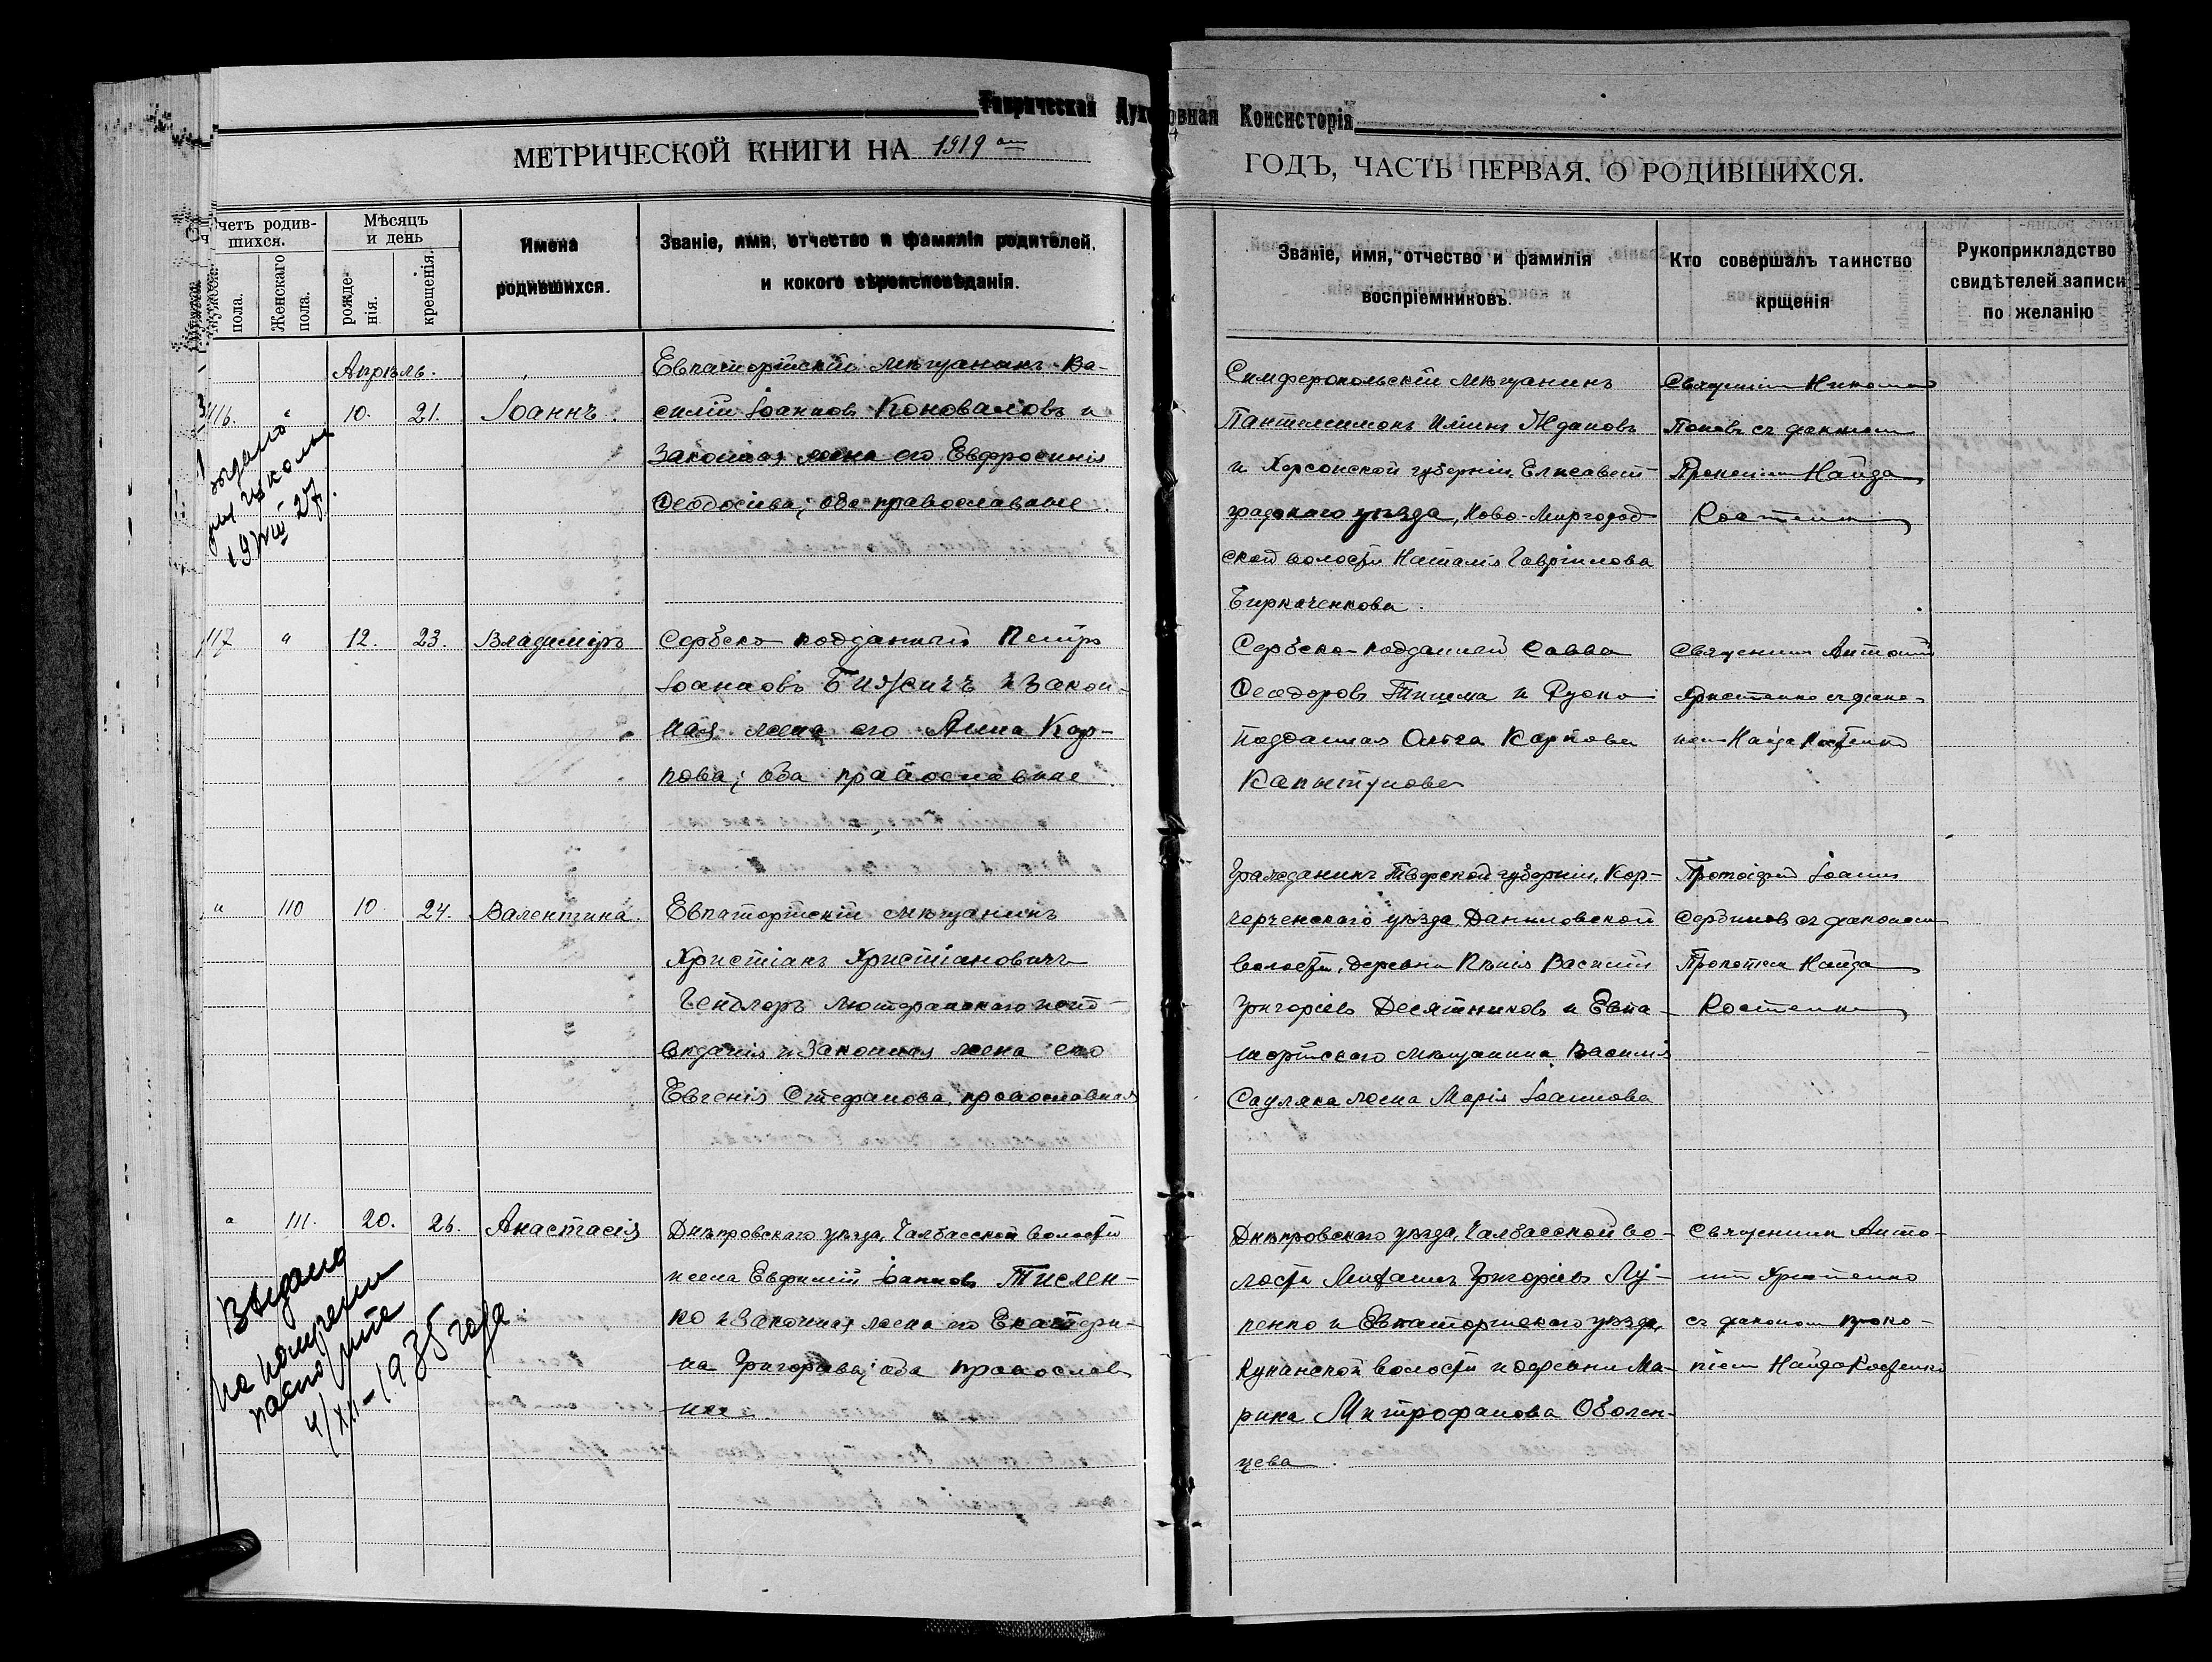 Таврическая Духовная Консисторія
МЕТРИЧЕСКОЙ КНИГИ НА 1919
ГОДЪ, ЧАСТЬ ПЕРВАЯ, О РОДИВШИХСЯ.
четъ родив-
шихся.
пола.
Женскаго
пола.
Мѣсяцъ
и день
рожде-
нія.
крещенія.
Имена
родившихся.
Званіе, имя, отчество и фамилія родителей,
и кокого вѣроисповѣданія.
Званіе, имя, отчество и фамилія
воспріемниковъ.
Кто совершалъ таинство
крщенія
Рукоприкладство
свидѣтелей записи
по желанію
Апрѣль.
116. " 10. 21. Іоаннъ.
Евпаторійскій мѣщанинъ Ва-
силій Іоанновъ Коноваловъ и
законная жена его Евфросинія
Ѳеодосіева; оба православные.
Симферопольскій мѣщанинъ
Пантелеимонъ Ждановъ
и Херсонской губерніи, Елисавет-
градскаго уѣзда, Ново-Миргород
ской волости Наталія Гавріилова
Священникъ
Поповъ съ діакономъ
Найда
Костенко
выдано
для школы
27.
117 " 12. 23. Владиміръ
Сербско-подданный Петръ
Іоанновъ и закон-
ная жена его Анна Кар-
пова; оба православные
Сербско-подданный Савва
Ѳеодоровъ и Руско
подданная Ольга Карпова
Капытунова
Священникъ Антоній
Христенко съ діако-
номъ Найда Костенко
" 110 10 24. Валентина.
Евпаторійскій мѣщанинъ
Христіанъ Христіановичъ
лютеранскаго испо-
вѣданія и законная жена его
Евгенія Стефанова, православная
Гражданинъ Тверской губерніи, Кор-
чевскаго уѣзда, Даниловской
волости, деревни Василій
Григоріевъ Десятниковъ и Евпа-
торійскаго мѣщанина Василія
Сауляка жена Марія Іоаннова
Протоіерей Іоаннъ
Сербиновъ съ діакономъ
Прокопіемъ Найда
Костенко
" 111. 20. 26. Анастасія
Днѣпровскаго уѣзда, Чалбасской волости
Евфимій Іоанновъ Тислен-
ко и законная жена его Екатери-
на Григорьева; оба православ
ные.
Днѣпровскаго уѣзда, Чалбасской во-
лости Григоріевъ Лу-
ценко и Евпаторійскаго уѣзда,
волости и деревни Ма-
рина Митрофанова Оболен-
цева.
Священникъ Анто-
ній Христенко
съ діакономъ Проко-
піем Найда Костенко
Выдано
на получении
паспорта
4/XII-1935 года